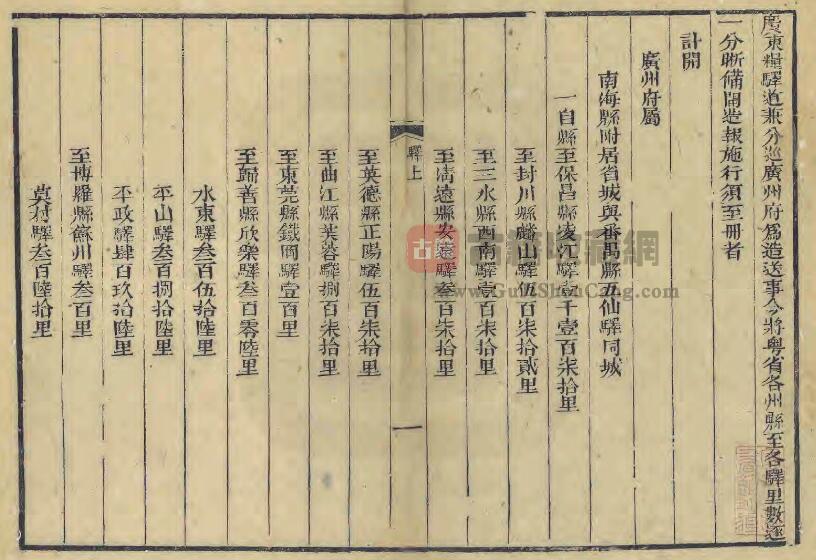 廣東糧驛道兼分巡廣州府爲造送事今將粵省各州縣至各驛里數逐
一分晰備開造報施行須至冊者
計開
廣州府屬
南海縣附居省城與番禺縣五仙驛同城
一自縣至保昌縣凌江驛壹千壹百柒拾里
至封川縣麟山驛伍百柒拾貳里
至三水縣西南驛壹百柒拾里
至清遠縣安遠驛叁百柒拾里
驛上
一
至英德縣正陽驛伍百柒拾里
至曲江縣芙蓉驛捌百柒拾里
至東莞縣鐵岡驛壹百里
至歸善縣欣樂驛叁百零陸里
水東驛叁百伍拾陸里
平山驛叁百捌拾陸里
平政驛肆百玖拾陸里
至博羅縣蘇州驛叁百里
莫村驛叁百陸拾里
古籍收藏網
www.GuJiShouCang.com